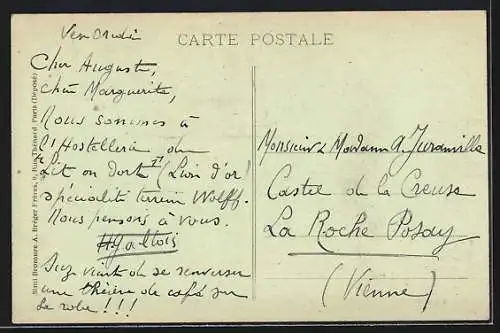 CARTE POSTALE
Vendredi
Cher Auguste,
chère Marguerite,
Nous sommes à
l'Hostellerie du
Lit on dort (Lion d'or!
spécialité terrein Wolff.
Nous pensons à vous.
Suz vient de se renverser
une théière de café sur
la robe!!!
Monsieur & Madame A. Juranville
Castel de la Creuse
La Roche Posay
(Vienne)
Réal Bromure A. Breger Frères, 9, Rue Thénard, Paris (Déposé)